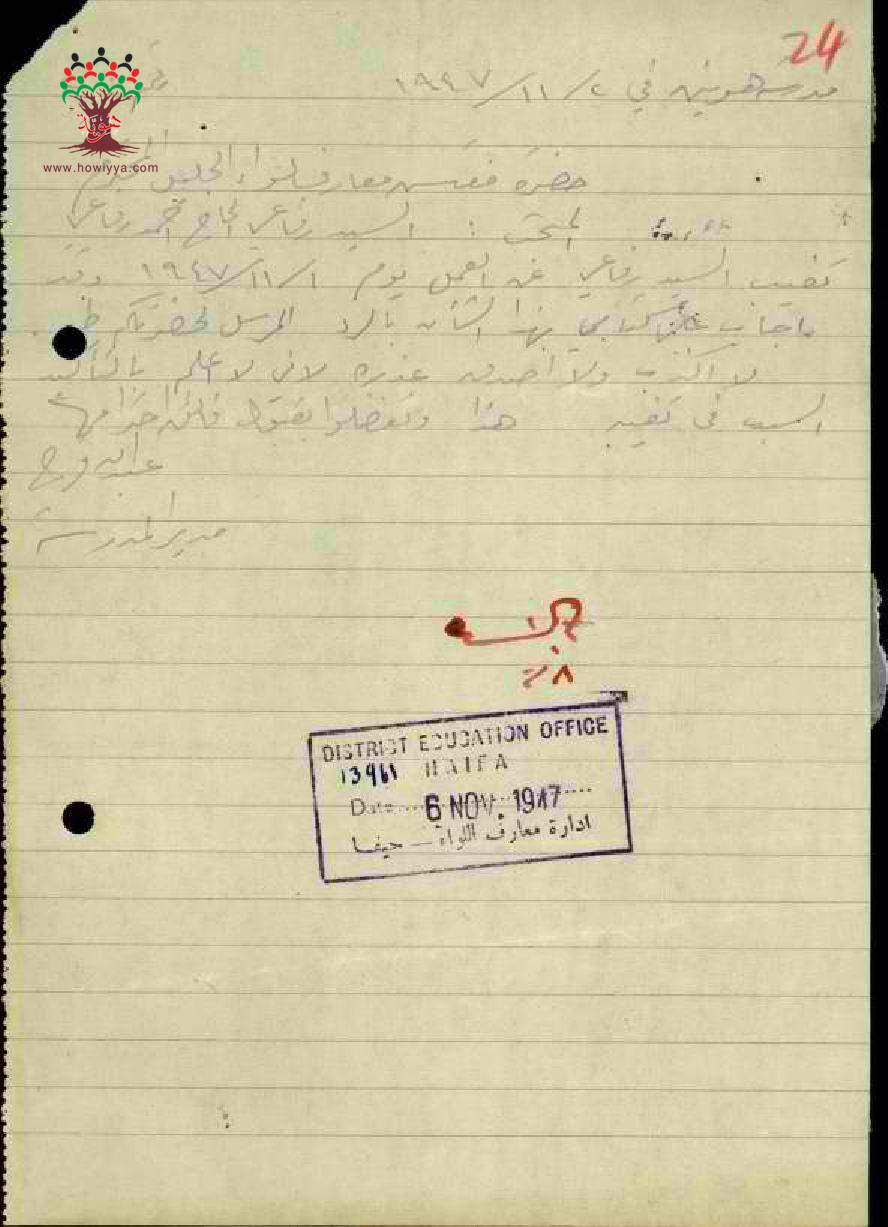 24
مدرسة هونين في ٢/١١/١٩٤٧
www.howiyya.com
حضرة مفتش معارف لواء الجليل المحترم
المبحث : السيد رفاعي الحاج احمد رفاعي
تغيب السيد رفاعي عن العمل يوم ١/١١/١٩٤٧ وقد
اجاب على كتابي بهذا الشأن بالرد المرسل لحضرتكم طيه.
لا اكذب ولا اصدق عذره لاني لا اعلم بالتأكيد
السبب في تغيبه هذا وتفضلوا بقبول فائق احترامي
عبدالله فرج
مدير المدرسة
DISTRICT EDUCATION OFFICE
13961 HAIFA
Date 6 NOV. 1947
ادارة معارف اللواء – حيفا